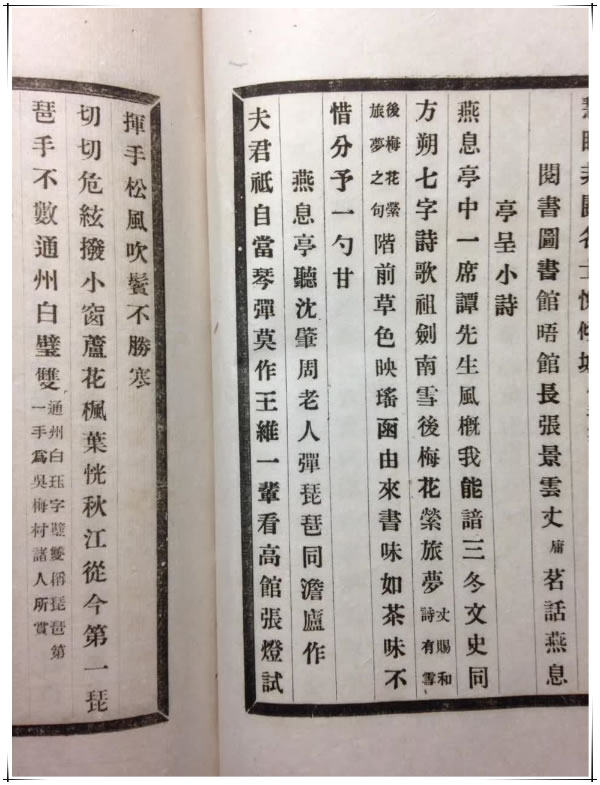 名士
閱書圖書館晤館長張景雲丈庸茗話燕息
亭呈小詩
燕息亭中一席譚先生風槪我能諳三冬文史同
方朔七字詩歌祖劍南雪後梅花縈旅夢丈賜和詩有雪
後梅花縈旅夢之句階前草色映瑤函由來書味如茶味不
惜分予一勺甘
燕息亭聽沈肇周老人彈琵琶同澹廬作
夫君祇自當琴彈莫作王維一輩看高館張燈試
揮手松風吹鬢不勝寒
切切危絃撥小窗蘆花楓葉恍秋江從今第一琵
琶手不數通州白璧雙通州白珏字璧雙稱琵琶第一手爲吳梅村諸人所賞